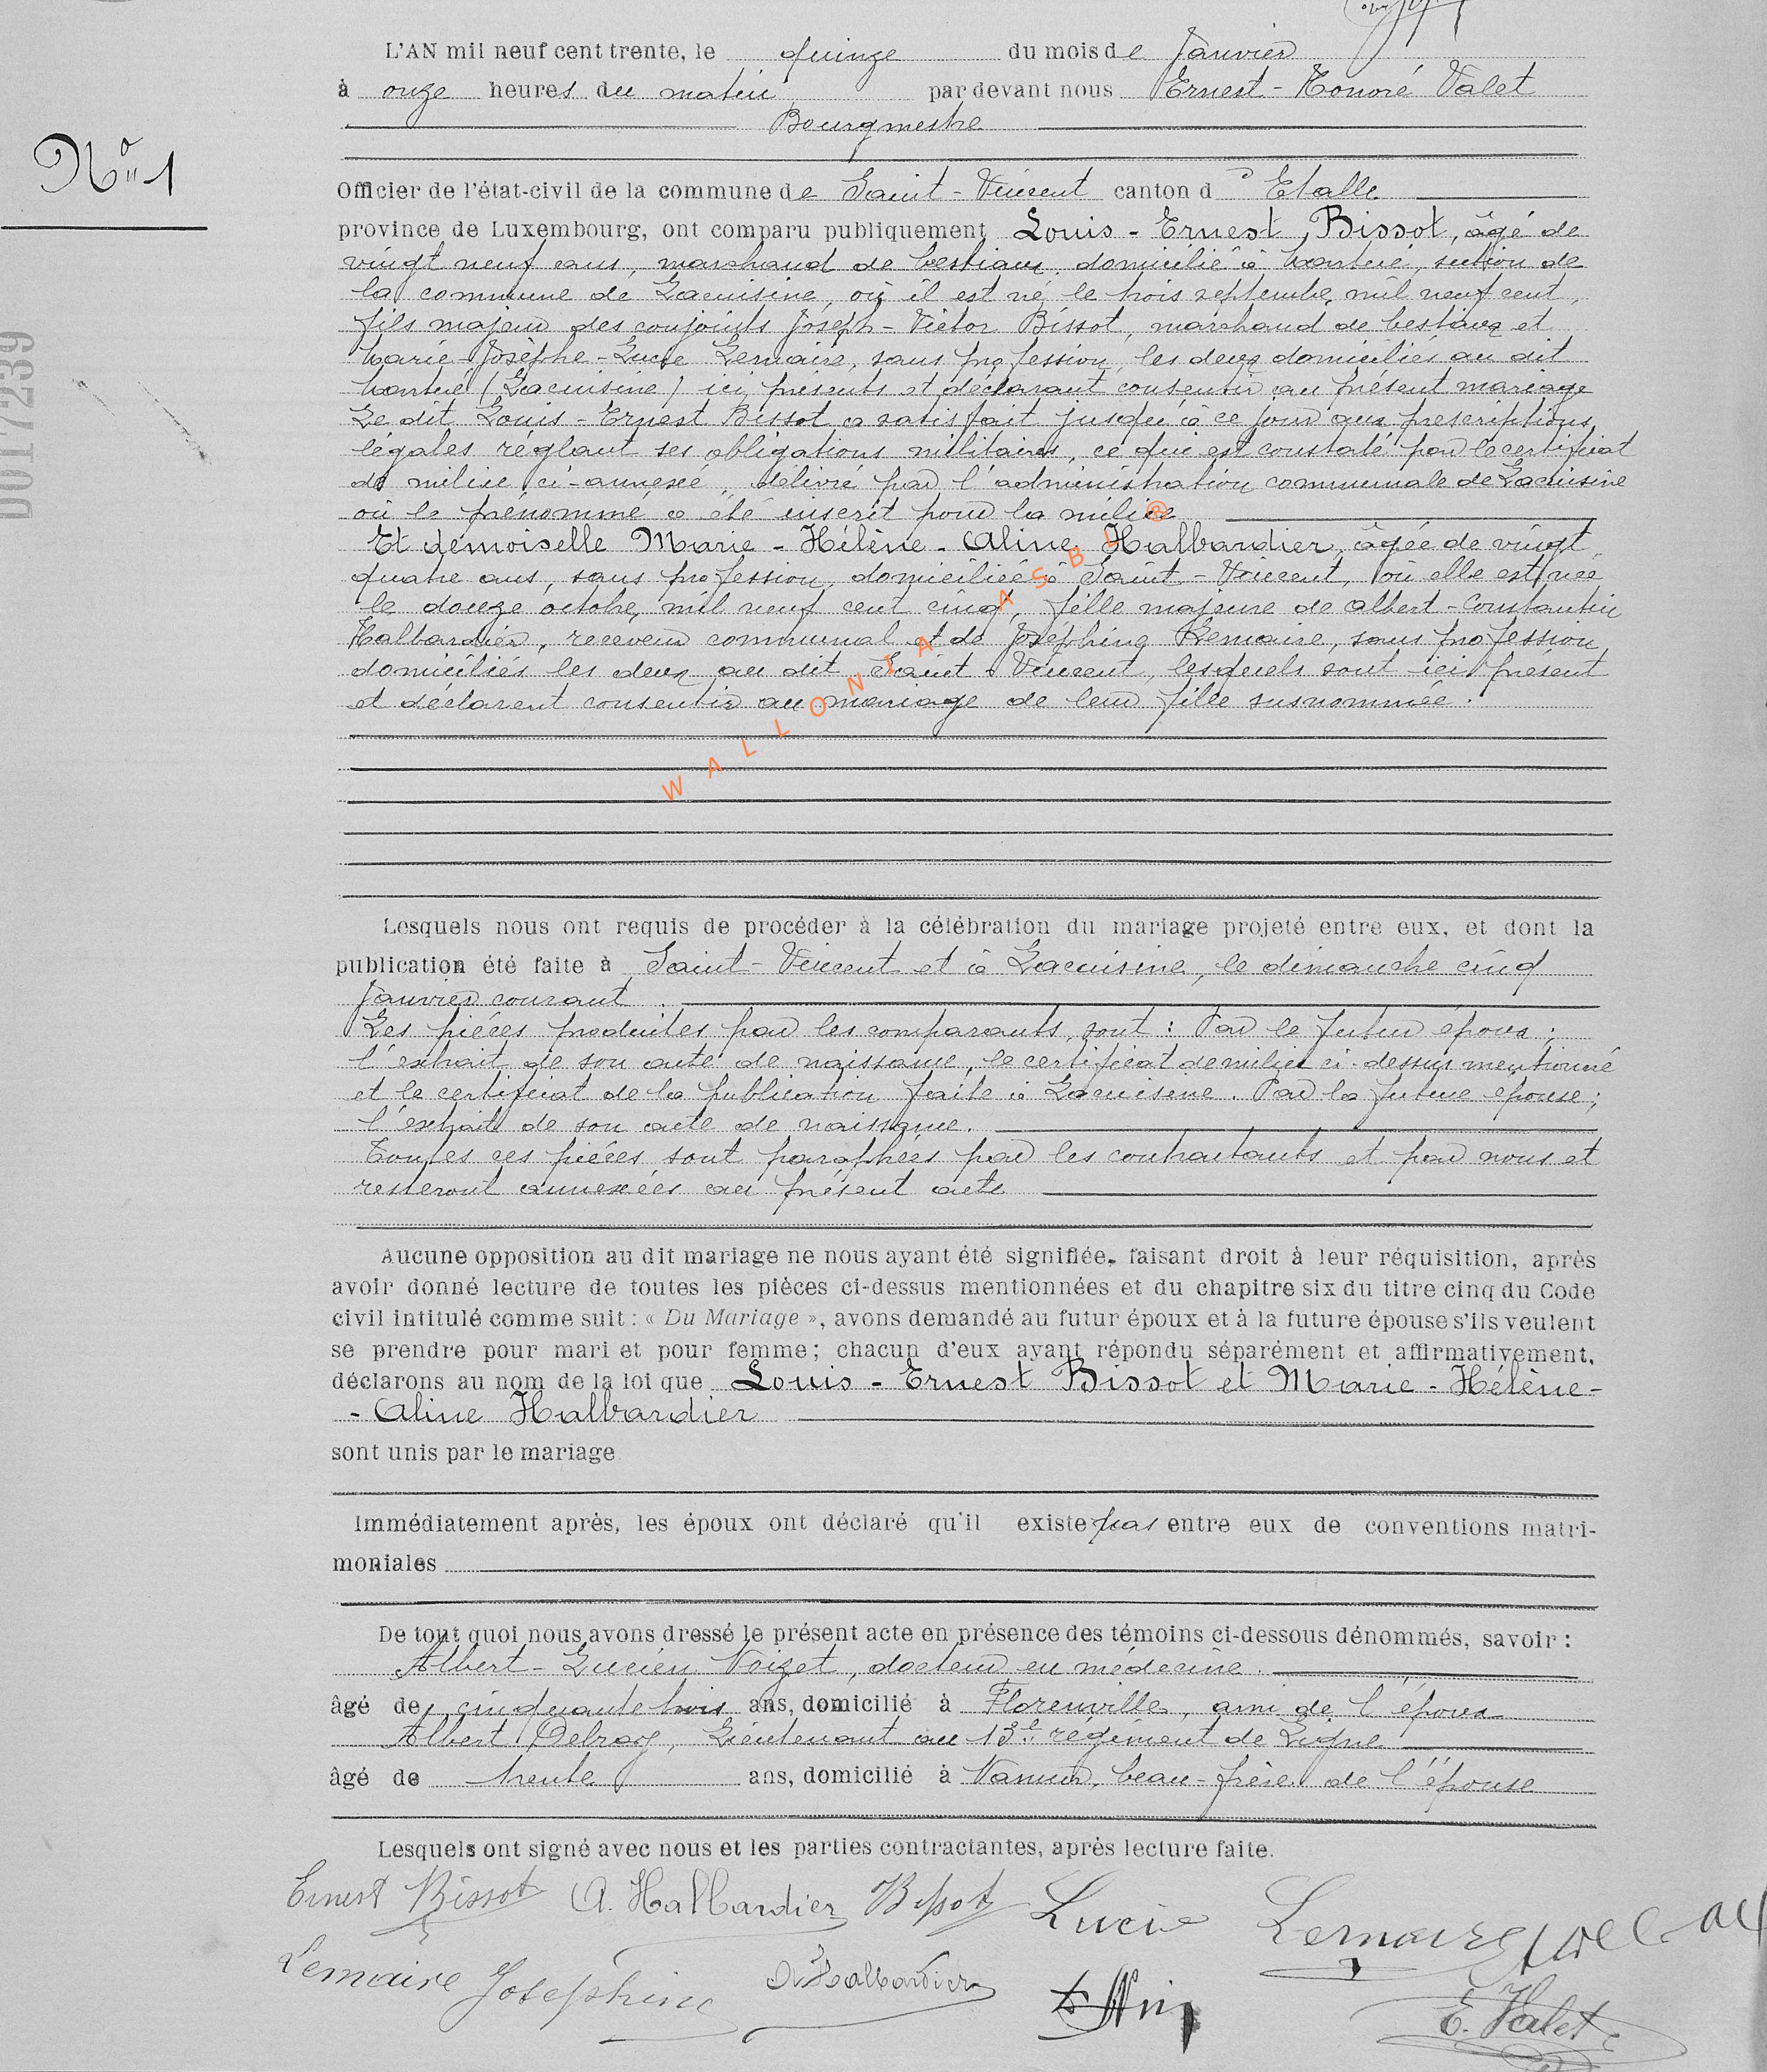 L'AN mil neuf cent trente, le quinze du mois de Janvier
à onze heures du matin par devant nous Ernest-Honoré Valet
Bourgmestre
Nº 1
Officier de l'état-civil de la commune de Saint-Vincent canton d'Etalle
province de Luxembourg, ont comparu publiquement Louis-Ernest Bissot, âgé de
vingt neuf ans, marchand de bestiaux, domicilié à section de
la commune de Lacuisine, où il est né le trois septembre mil neuf cent,
fils majeur des conjoints Joseph-Victor Bissot, marchand de bestiaux et
Marie-Josèphe-Lucie Lemaire, sans profession, les deux domiciliés au dit
(Lacuisine) ici présents et déclarant consentir au présent mariage
Le dit Louis-Ernest Bissot a satisfait jusqu'à ce jour aux prescriptions
légales réglant ses obligations militaires, ce qui est constaté par le certificat
de milice ci-annexé, délivré par l'administration communale de Lacuisine
où le prénommé a été inscrit pour la milice
Et demoiselle Marie-Hélène-Aline Halbardier, âgée de vingt
quatre ans, sans profession, domiciliée à Saint-Vincent, où elle est née
le douze octobre mil neuf cent cinq, fille majeure de Albert-Constantin
Halbardier, receveur communal et de Joséphine Lemaire, sans profession,
domiciliés les deux au dit Saint-Vincent, lesquels sont ici présent
et déclarent consentir au mariage de leur fille susnommée.
WALLONIA ASBL ®
D017239
Lesquels nous ont requis de procéder à la célébration du mariage projeté entre eux, et dont la
publication été faite à Saint-Vincent et à Lacuisine, le dimanche cinq
Janvier courant.
Les pièces produites par les comparants, sont : Par le futur époux ;
l'extrait de son acte de naissance, le certificat de milice ci-dessus mentionné
et le certificat de la publication faite à Lacuisine. Par la future épouse ;
l'extrait de son acte de naissance.
Toutes ces pièces sont paraphées par les contractants et par nous et
resteront annexées au présent acte
Aucune opposition au dit mariage ne nous ayant été signifiée, faisant droit à leur réquisition, après
avoir donné lecture de toutes les pièces ci-dessus mentionnées et du chapitre six du titre cinq du Code
civil intitulé comme suit : « Du Mariage », avons demandé au futur époux et à la future épouse s'ils veulent
se prendre pour mari et pour femme ; chacun d'eux ayant répondu séparément et affirmativement,
déclarons au nom de la loi que Louis-Ernest Bissot et Marie-Hélène-
-Aline Halbardier
sont unis par le mariage
Immédiatement après, les époux ont déclaré qu'il existe pas entre eux de conventions matri-
moniales
De tout quoi nous avons dressé le présent acte en présence des témoins ci-dessous dénommés, savoir :
Albert-Lucien Noizet, docteur en médecine.
âgé de cinquante trois ans, domicilié à Florenville, ami de l'époux
Albert Delrocq, Lieutenant au 13e régiment de Ligne
âgé de trente ans, domicilié à Namur, beau-frère de l'épouse
Lesquels ont signé avec nous et les parties contractantes, après lecture faite.
Ernest Bissot A. Halbardier Bissot Lucie Lemaire
Lemaire Josephine A. Halbardier E. Valet